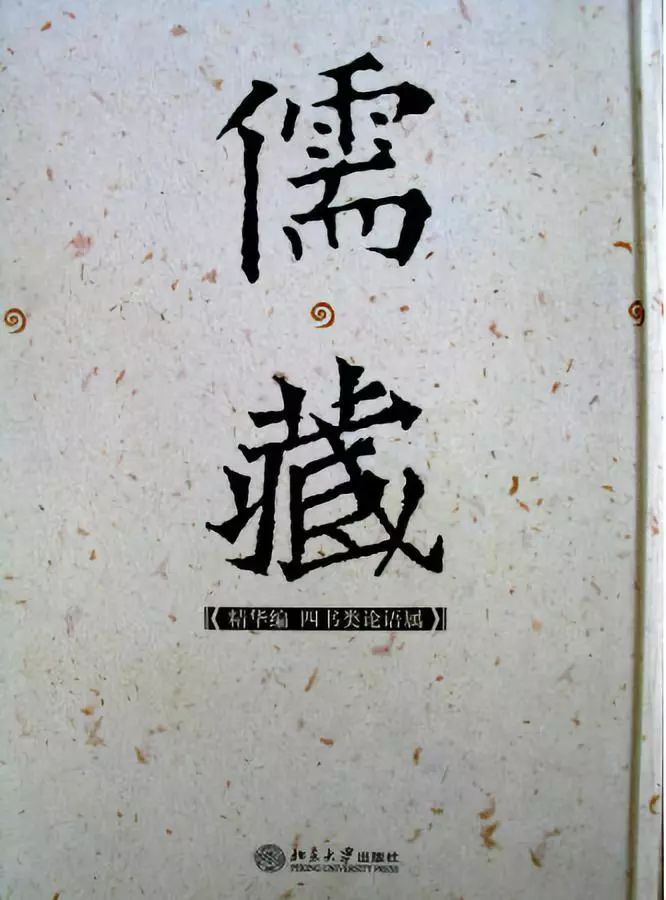 儒
藏
《精华编 四书类论语属》
北京大学出版社
PEKING UNIVERSITY PRESS